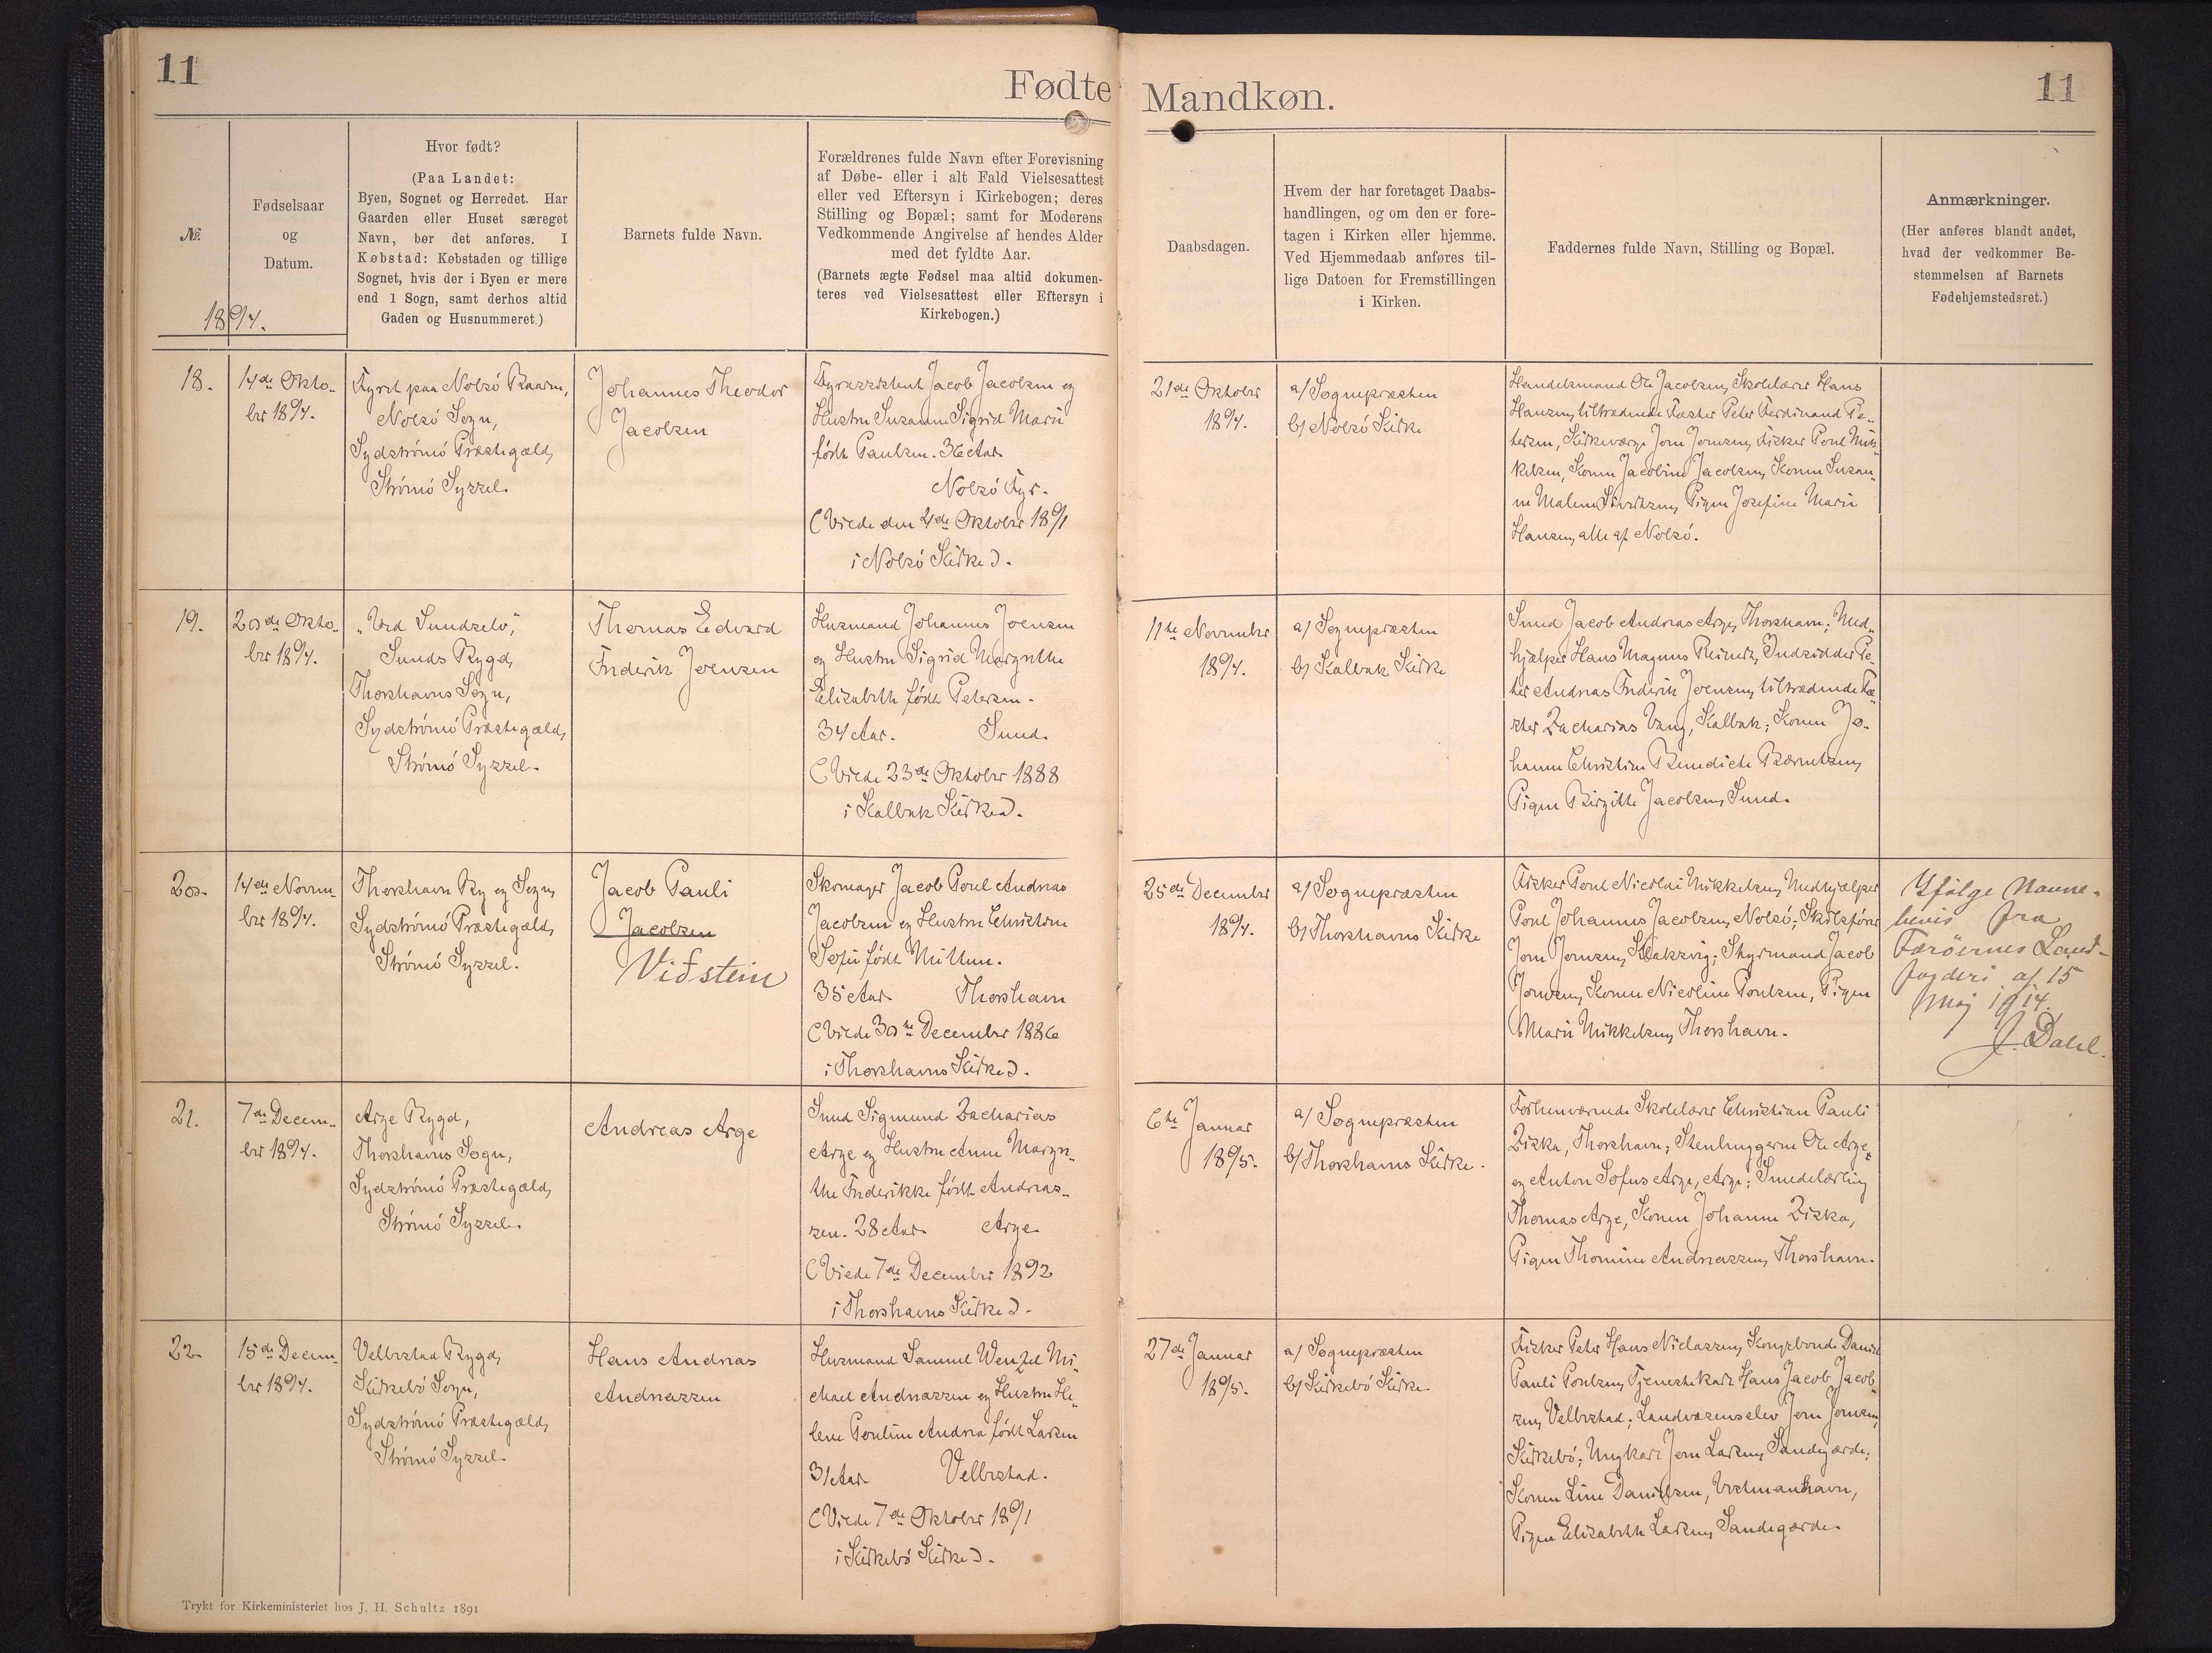 11
Fødte
Mandkøn.
11
№.
1894.
Fødselsaar
og
Datum.
Hvor født?
(Paa Landet:
Byen, Sognet og Herredet. Har
Gaarden eller Huset særeget
Navn, bør det anføres. I
Købstad: Købstaden og tillige
Sognet, hvis der i Byen er mere
end 1 Sogn, samt derhos altid
Gaden og Husnummeret.)
Barnets fulde Navn.
Forældrenes fulde Navn efter Forevisning
af Døbe- eller i alt Fald Vielsesattest
eller ved Eftersyn i Kirkebogen; deres
Stilling og Bopæl; samt for Moderens
Vedkommende Angivelse af hendes Alder
med det fyldte Aar.
(Barnets ægte Fødsel maa altid dokumen-
teres ved Vielsesattest eller Eftersyn i
Kirkebogen.)
Daabsdagen.
Hvem der har foretaget Daabs-
handlingen, og om den er fore-
tagen i Kirken eller hjemme.
Ved Hjemmedaab anføres til-
lige Datoen for Fremstillingen
i Kirken.
Faddernes fulde Navn, Stilling og Bopæl.
Anmærkninger.
(Her anføres blandt andet,
hvad der vedkommer Be-
stemmelsen af Barnets
Fødehjemstedsret.)
18.
14de Okto-
ber 1894.
Fyret paa Nolsö Boarin,
Nolsö Sogn,
Sydströmö Præstegæld,
Strömö Syssel.
Johannes Theodor
Jacobsen
Fyrassistent Jacob Jacobsen og
Hustru Susanne Sigrid Marie
født Paulsen. 36 Aar.
Nolsö Fyr.
(Viede den 4de Oktober 1891
i Nolsö Kirke).
21de Oktober
1894.
a/ Sognepræsten
b/ Nolsö Kirke
Handelsmand Ole Jacobsen, Skolelærer Hans
Hansen, tiltrædende Fæster Peter Ferdinand Pe-
tersen, Kirkeværge Joen Joensen, Fisker Poul Mik-
kelsen, Konen Jacobine Jacobsen, Konen Susan-
ne Malene Sivertsen, Pigen Josefine Marie
Hansen, alle af Nolsö.
19.
20de Okto-
ber 1894.
"Ved Sundselv",
Sunds Bygd,
Thorshavns Sogn,
Sydströmö Præstegæld,
Strömö Syssel.
Thomas Edvard
Frederik Joensen
Husmand Johannes Joensen
og Hustru Sigrid Margrethe
Elisabeth født Petersen.
34 Aar. Sund.
(Viede 23de Oktober 1888
i Kalbak Kirke).
11te November
1894.
a/ Sognepræsten
b/ Kalbak Kirke
Smed Jacob Andreas Arge, Thorshavn; Med-
hjælper Hans Magnus Reinert, Indsidder Pe-
ter Andreas Frederik Joensen, tiltrædende Fæ-
ster Zacharias Vang, Kalbak; Konen Jo-
hanne Christine Benedicte Berentsen,
Pigen Birgitte Jacobsen, Sund.
20.
14de Novem-
ber 1894.
Thorshavn By og Sogn,
Sydströmö Præstegæld,
Strömö Syssel.
Jacob Pauli
Jacobsen
Viðstein
Skomager Jacob Poul Andreas
Jacobsen og Hustru Christine
Sofie født Müller.
35 Aar. Thorshavn
(Viede 30te December 1886
i Thorshavns Kirke).
25de December
1894.
a/ Sognepræsten
b/ Thorshavns Kirke
Fisker Poul Nicolai Mikkelsen, Medhjælper
Poul Johannes Jacobsen, Nolsö; Skibsfører
Joen Joensen, Klaksvig; Styrmand Jacob
Joensen, Konen Nicoline Poulsen, Pigen
Marie Mikkelsen, Thorshavn.
Ifölge Navne-
bevis fra
Færöernes Land-
fogderi af 15
Maj 1914.
J. Dahl.
21.
7de Decem-
ber 1894.
Arge Bygd,
Thorshavns Sogn,
Sydströmö Præstegæld,
Strömö Syssel.
Andreas Arge
Smed Sigmund Zacharias
Arge og Hustru Anne Margre-
the Frederikke født Andreas-
sen. 28 Aar. Arge
(Viede 7de December 1892
i Thorshavns Kirke).
6te Januar
1895.
a/ Sognepræsten
b/ Thorshavns Kirke.
Forhenværende Skolelærer Christian Pauli
Ziska, Thorshavn; Stenhuggerne Ole Arge
og Anton Sofus Arge, Arge; Smedelærling
Thomas Arge, Konen Johanne Ziska,
Pigen Thomine Andreassen, Thorshavn.
22.
15de Decem-
ber 1894.
Velbestad Bygd,
Kirkebö Sogn,
Sydströmö Præstegæld,
Strömö Syssel.
Hans Andreas
Andreassen
Husmand Samuel Wenzel Mi-
chael Andreassen og Hustru He-
lene Pouline Andrea født Larsen
31 Aar. Velbestad.
(Viede 7de Oktober 1891
i Kirkebö Kirke).
27de Januar
1895.
a/ Sognepræsten
b/ Kirkebö Kirke.
Fisker Peter Hans Niclassen, Kongsbonde Daniel
Pauli Poulsen, Tjenestekarl Hans Jacob Jacob-
sen, Velbestad; Landvæsenselev Joen Joensen,
Kirkebö; Ungkarl Joen Larsen, Sandegærde;
Konen Line Danielsen, Vestmanhavn,
Pigen Elisabeth Larsen, Sandegærde.
Trykt for Kirkeministeriet hos J. H. Schultz 1891